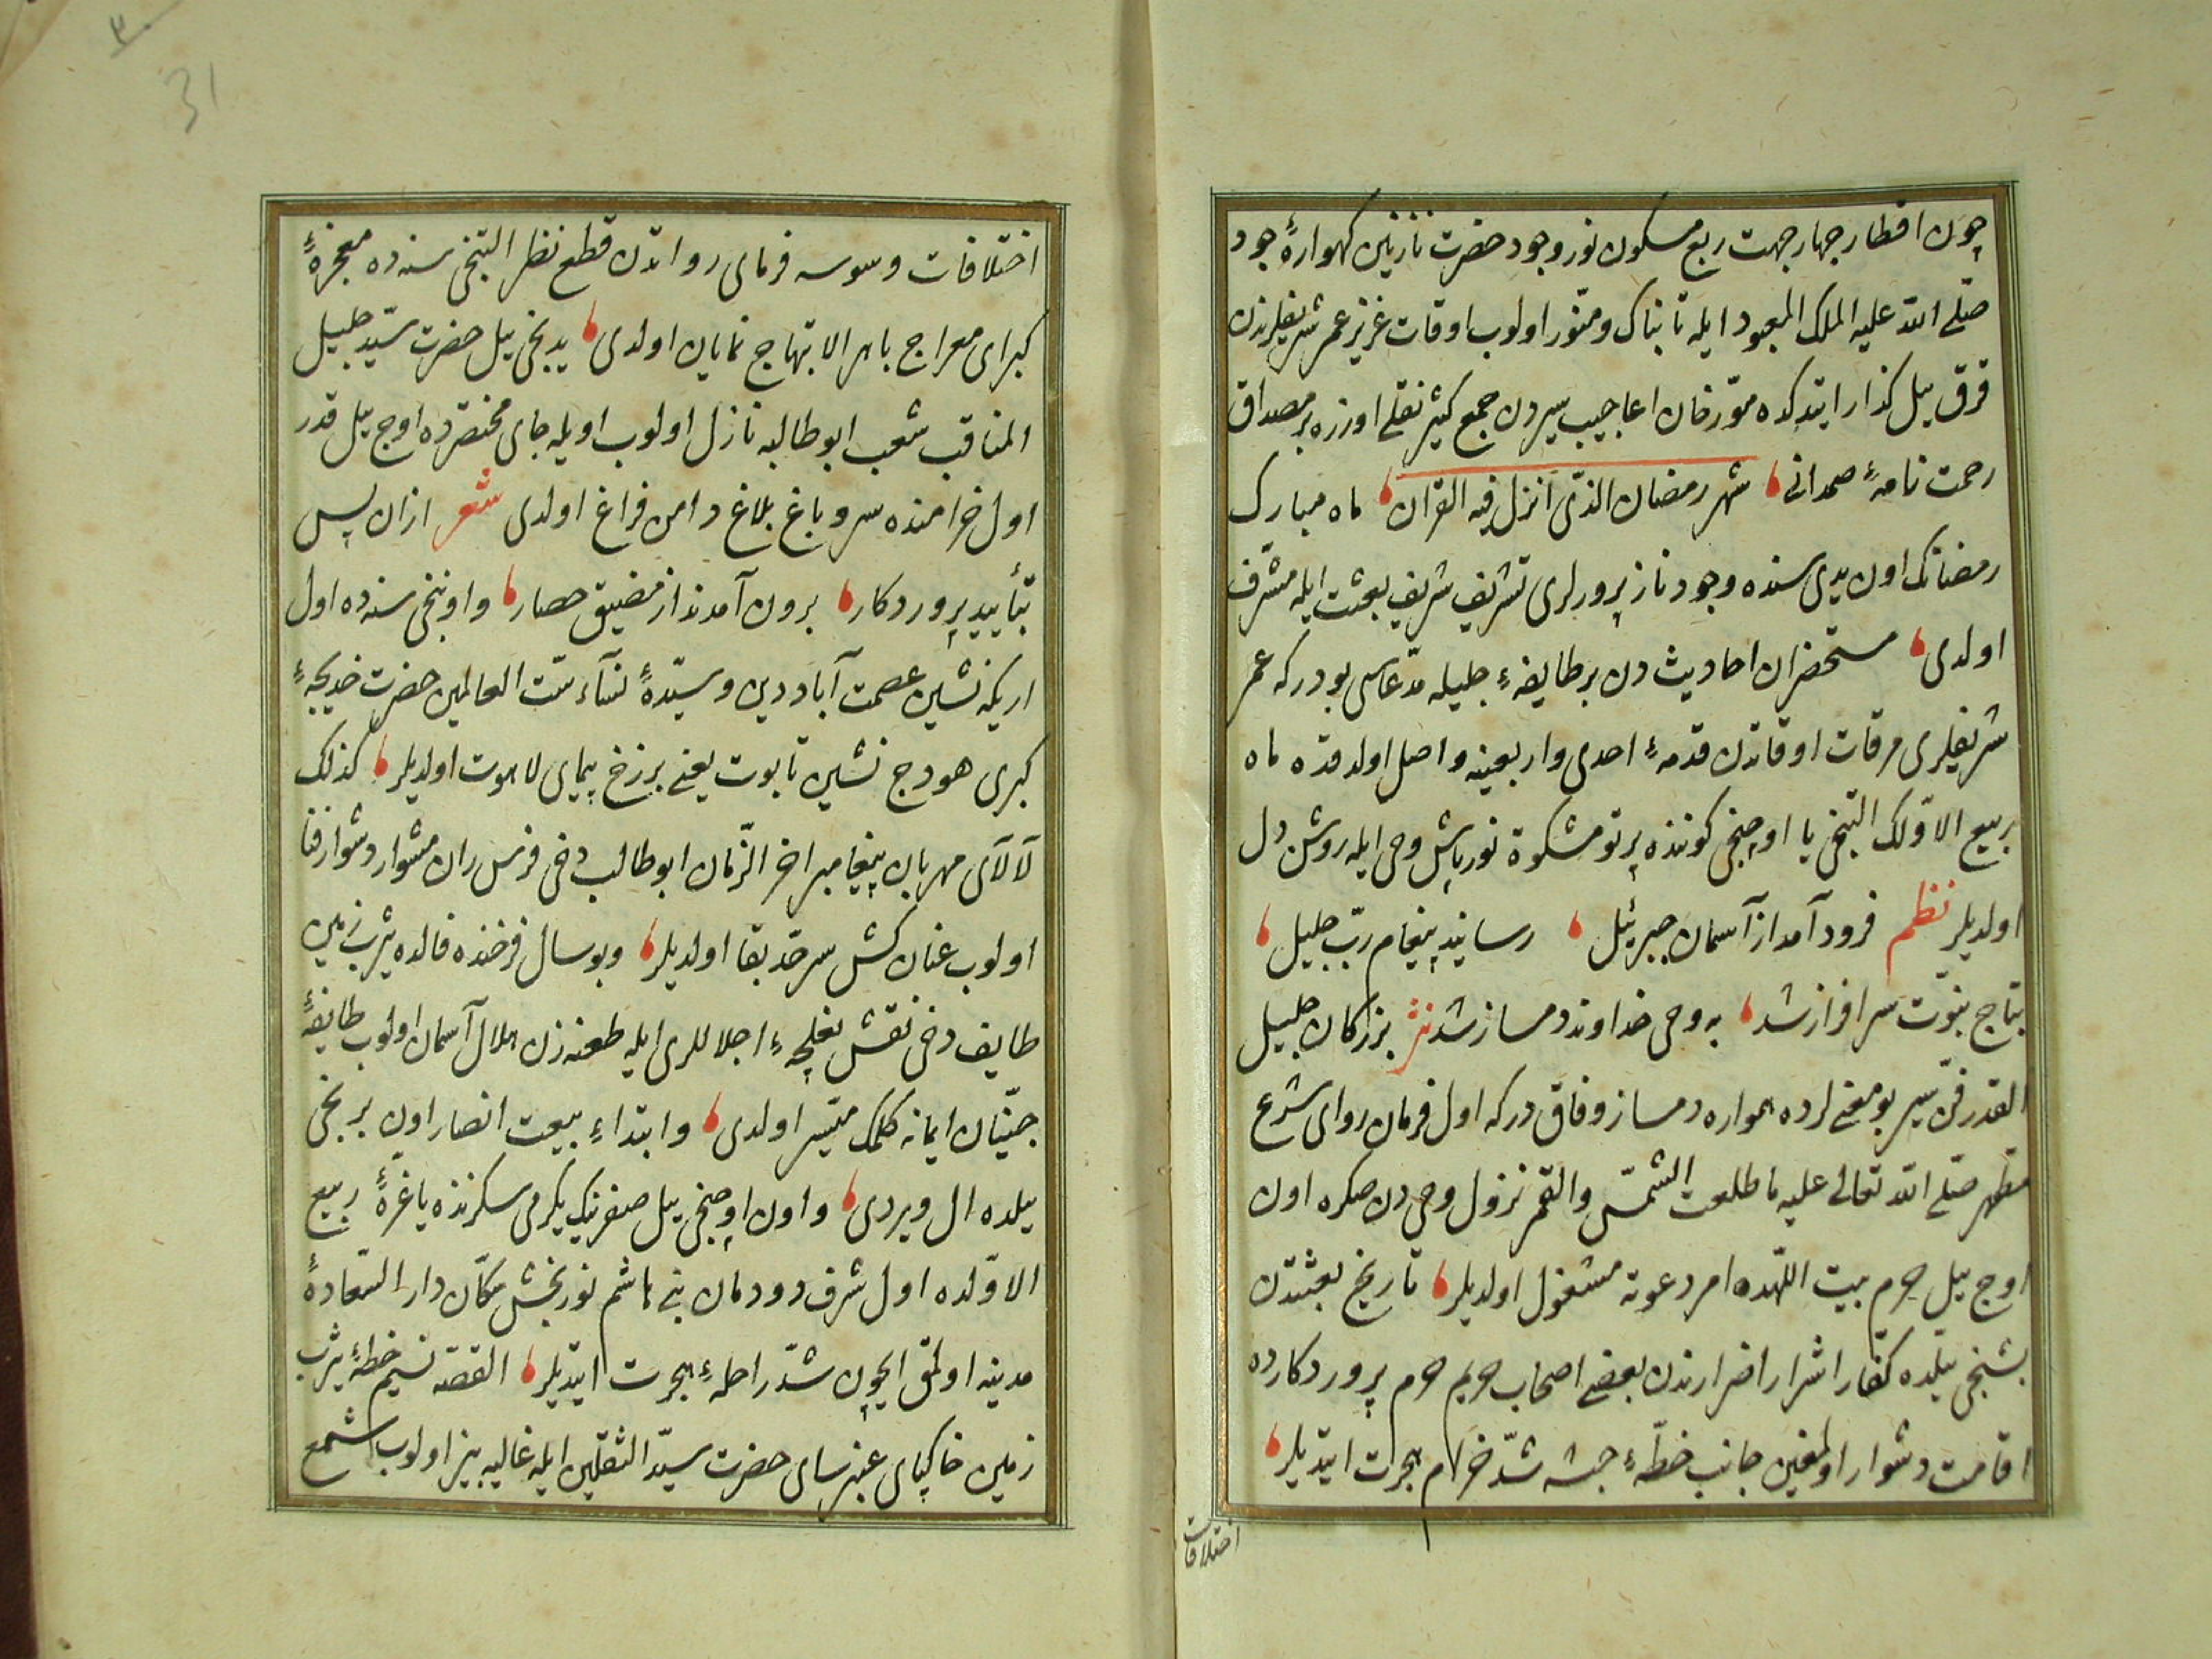 چون اقطار چهار جهت ربع مسكون نور وجود حضرت نازنین كهوارهٔ جود
صلّی الله علیه الملك المعبود ایله تابناك و منوّر اولوب اوقات عزیز عمر شریفلرندن
قرق ییل كذار ایتدكده مؤرخان اعاجیب سیردن جمع كثیر نقلی اوزره بر مصداق
رحمت نامهٔ صمدانی شهر رمضان الذی انزل فیه القران ماه مبارك
رمضانك اون یدی سنده وجود ناز پرورلری تشریف شریف بعثت ایله مشرّف
اولدی مستحضران احادیث دن بر طایفهٔ جلیله مدّعاسی بودر كه عمر
شریفلری مرقات اوقاتدن قدمهٔ احدی و اربعینه واصل اولدقده ماه
ربیع الاوّلك التنجی یا اوچنجی كوننده پرتو مشكوة نورپاش وحی ایله روشن دل
اولدیلر نظم فرود آمد از آسمان جبرئیل رسانید پیغام ربّ جلیل
بتاج نبوّت سرافراز شد به وحی خداوند دمساز شد نثر بزركان جلیل
القدر فنّ سیر بو معنی لرده همواره دمساز وفاق در كه اول فرمان روای شرع
مطهر صلّی الله تعالی علیه ما طلعت الشمس والقمر نزول وحی دن صكره اون
اوچ ییل حرم بیت اللهده امر دعوته مشغول اولدیلر تاریخ بعثتدن
بشنجی ییلده كفّار اشرار اضرارندن بعضی اصحاب حریم حرم پروردكارده
اقامت دشوار اولمغین جانب خطّهٔ حبشه شدّ خرام هجرت ایتدیلر
اختلافات
31
اختلافات وسوسه فرمای رواتدن قطع نظر التنجی سنه ده معجزهٔ
كبرای معراج باهر الابتهاج نمایان اولدی یدنجی ییل حضرت سیّد جلیل
المناقب شعب ابو طالبه نازل اولوب اویله جای مختصرده اوچ ییل قدر
اول خرامنده سرو باغ بلاغ دامن فراغ اولدی شعر ازان پس
بتأیید پروردكار برون آمدند از مضیق حصار و اوننجی سنه ده اول
اریكه نشین عصمت آباد دین و سیّدهٔ نسآء ستّ العالمین حضرت خدیجهٔ
كبری هودج نشین تابوت یعنی برزخ پیمای لاهوت اولدیلر كذلك
لآلآی مهربان پیغامبر اخر الزّمان ابو طالب دخی فرس ران مشوار دشوار فنا
اولوب عنان كش سرحدّ بقا اولدیلر و بو سال فرخنده فالده یثرب زمین
طایف دخی نقش نعلچهٔ اجلاللری ایله طعنه زن هلال آسمان اولوب طایفهٔ
جنّیان ایمانه كلمك میسّر اولدی و ابتداء بیعت انصار اون برنجی
ییلده ال ویردی و اون اوچنجی ییل صفرینك یكرمی سكزنده یا غرّهٔ ربیع
الاوّلده اول شرف دودمان بنی هاشم نور بخش سكّان دار السّعادهٔ
مدینه اولمق ایچون شدّ راحلهٔ هجرت ایتدیلر القصّه نسیم خطهٔ یثرب
زمین خاكپای عنبرسای حضرت سیّد الثقلین ایله غالیه بیز اولوب شمع